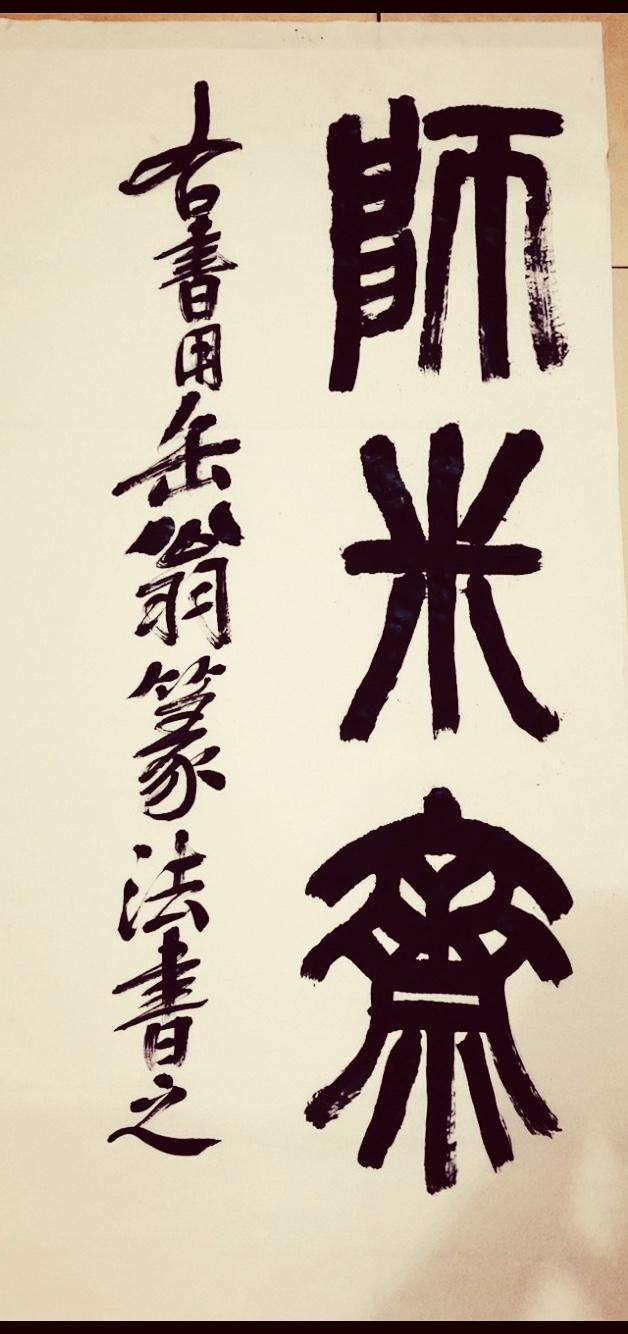 師米齋
右書用缶翁篆法書之